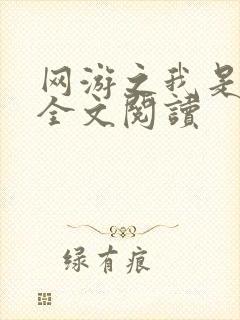 网游之我是
全文閱讀
绿有痕